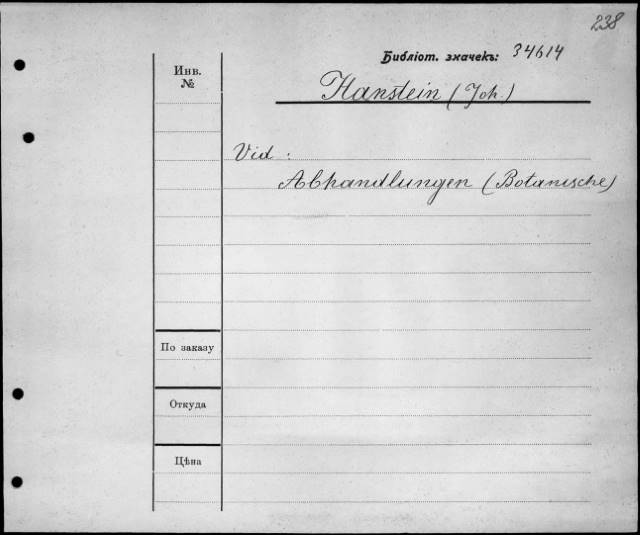 238
Библіот. значекъ: 34614
Инв.
№
Hanstein (Joh.)
Vid :
Abhandlungen (Botanische)
По заказу
Откуда
Цѣна